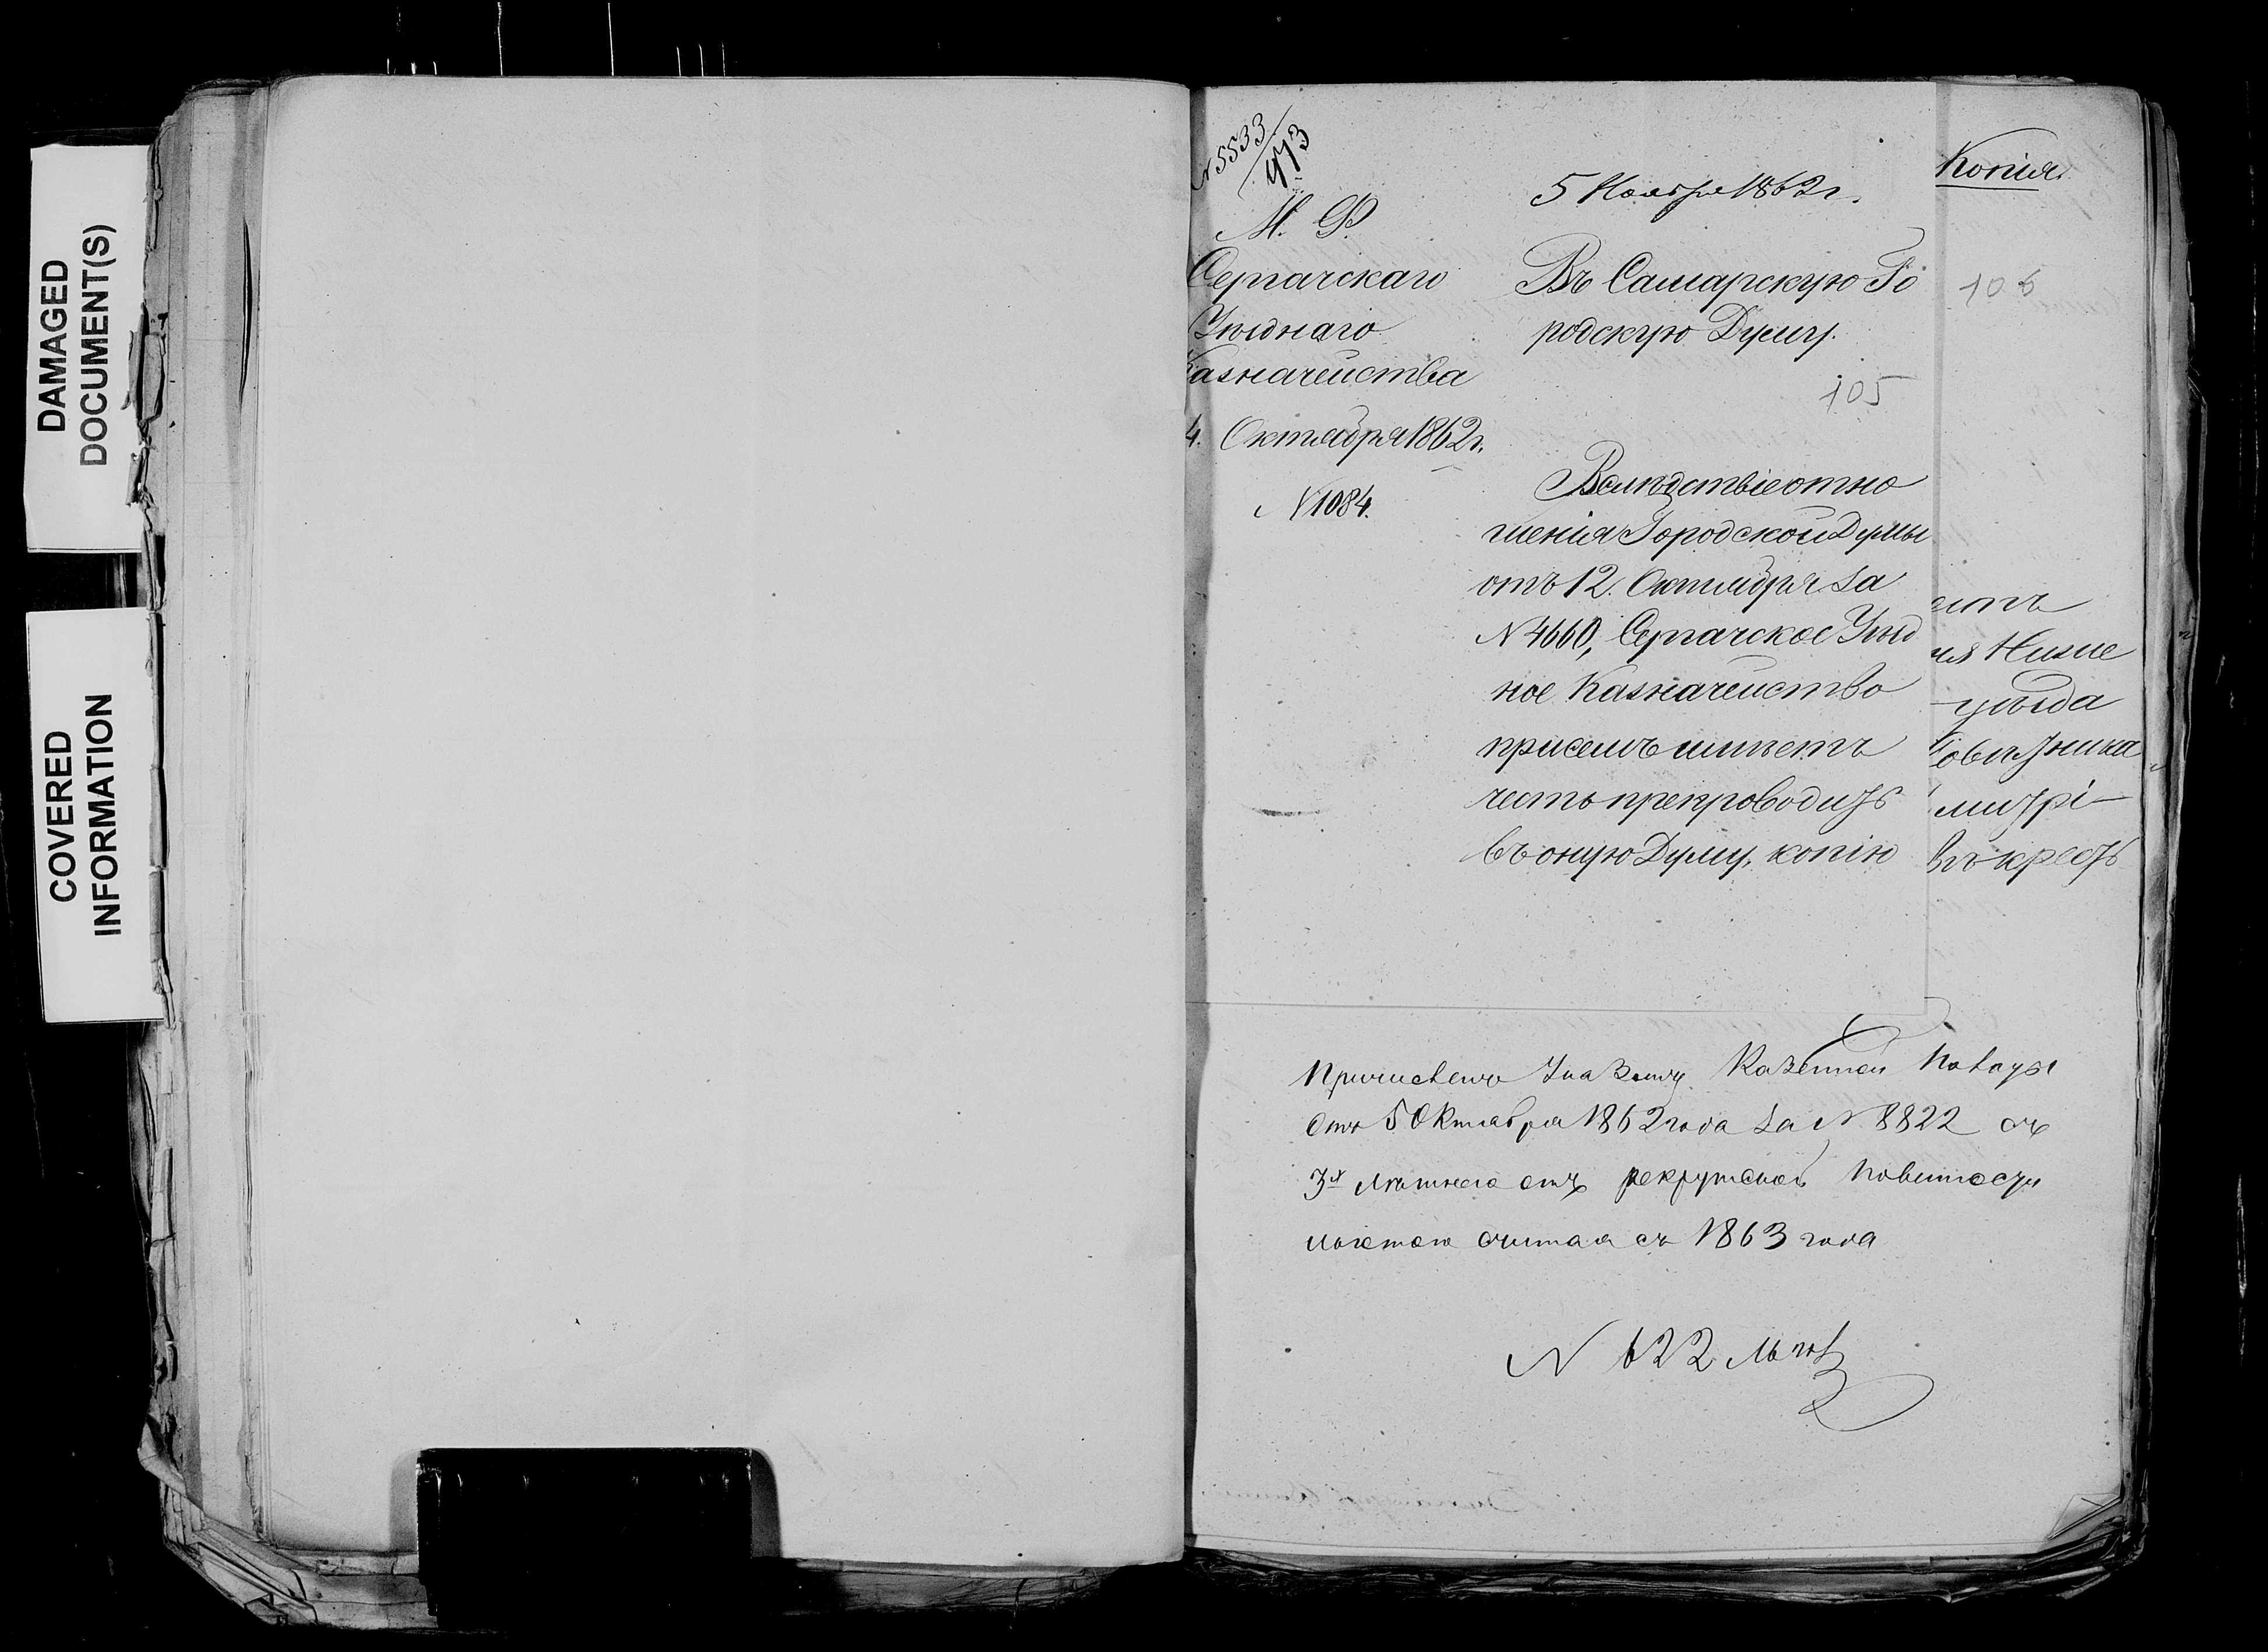 DAMAGED
DOCUMENT(S)
COVERED
INFORMATION
N 5533
973
М. Ф.
Сергачскаго
Уѣзднаго
Казначейства
4. Октября 1862 г.
N 1084.
5 Ноября 1862 г.
Въ Самарскую Го
родскую Думу.
105
Вслѣдствіе отно
шенія Городской Думы
отъ 12. Октября за
N 4660, Сергачское Уѣзд
ное Казначейство
при семъ имѣетъ
честь препроводить
въ оную Думу, копію
Копія.
106
Ниже
уѣзда
крестъ
Причисленъ Указомъ Казенной Палаты
отъ 5 Октября 1862 года за N 8822 съ
3х лѣтнею отъ рекрутской повинности
льготою считая съ 1863 года
N 622